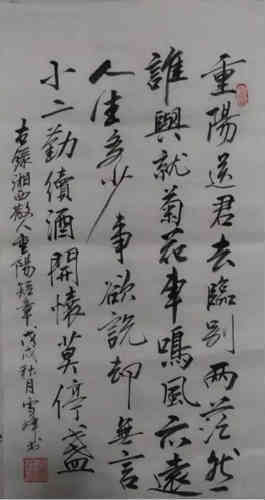 重陽送君去臨別兩茫然
誰與就菊花車鳴風亦遠
人生多少事欲說却無言
小二勤續酒開懷莫停盞
右錄湘西散人重陽短章戊戌秋月雪峰书